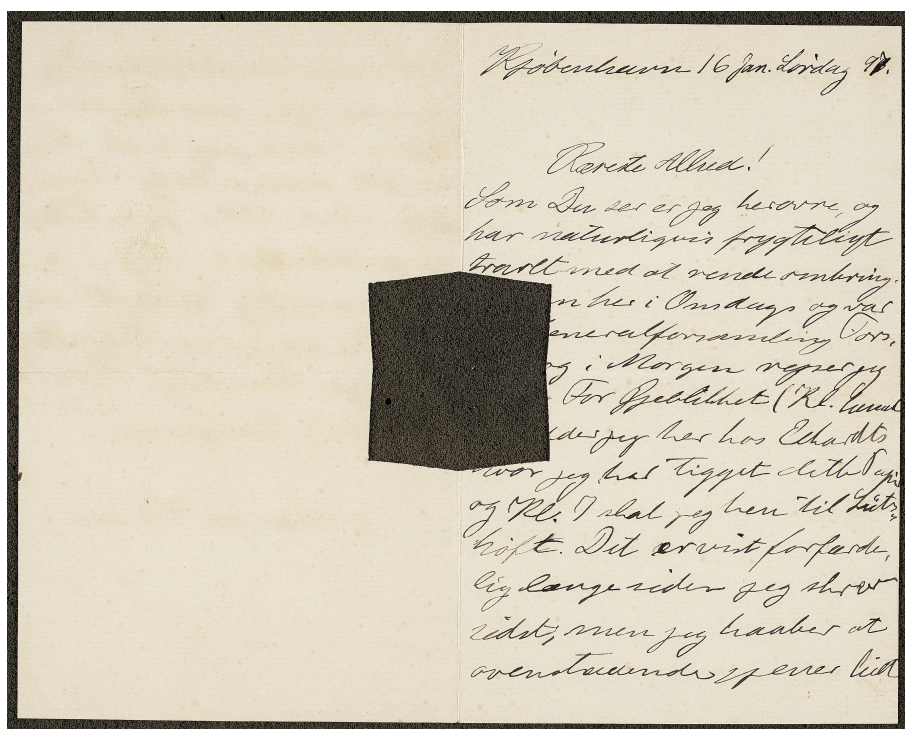 Kjøbenhavn 16 Jan. Lørdag 97.
Kæreste Alhed!
Som Du ser er jeg herovre, og
har naturligvis frygteligt
travlt med at rende omkring.
n her i Onsdags og var
eneralforsamling Tors-
og i Morgen rejser jeg
For Øjeblikket (Kl.
der jeg her hos Eckardts
hvor jeg har tigget dette Papir
og Kl. 7 skal jeg hen til Lüts-
höft. Det er vist forfærde-
lig længe siden jeg skrev
sidst, men jeg haaber at
ovenstaaende tjener lidt